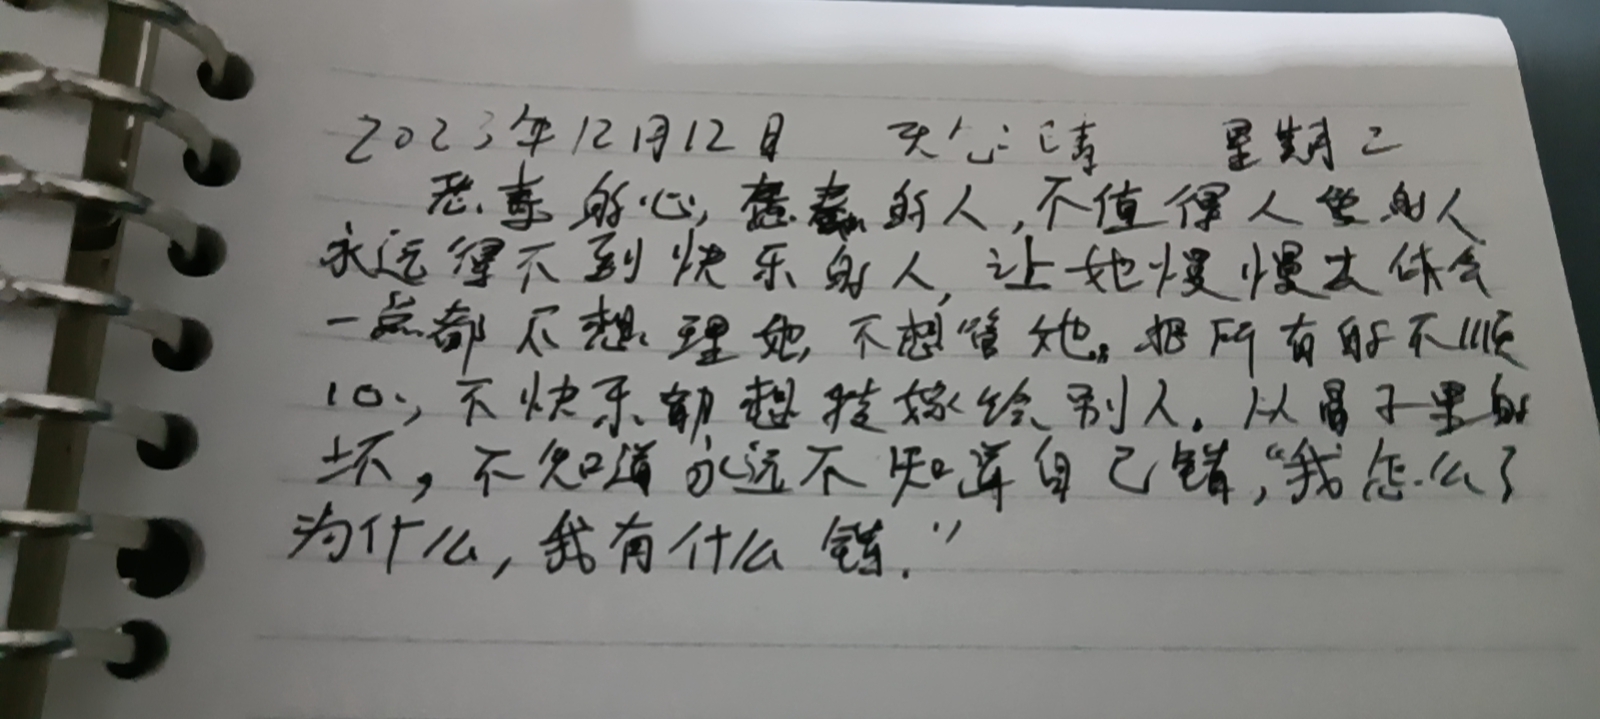 2023年12月12日 天气:晴 星期二
恶毒的心,愚蠢的人,不值得人爱的人
永远得不到快乐的人,让她慢慢去体会
一点都不想理她,不想管她。把所有的不顺
心、不快乐都想转嫁给别人。从骨子里的
坏,不知道永远不知道自己错,“我怎么了
为什么,我有什么错.”